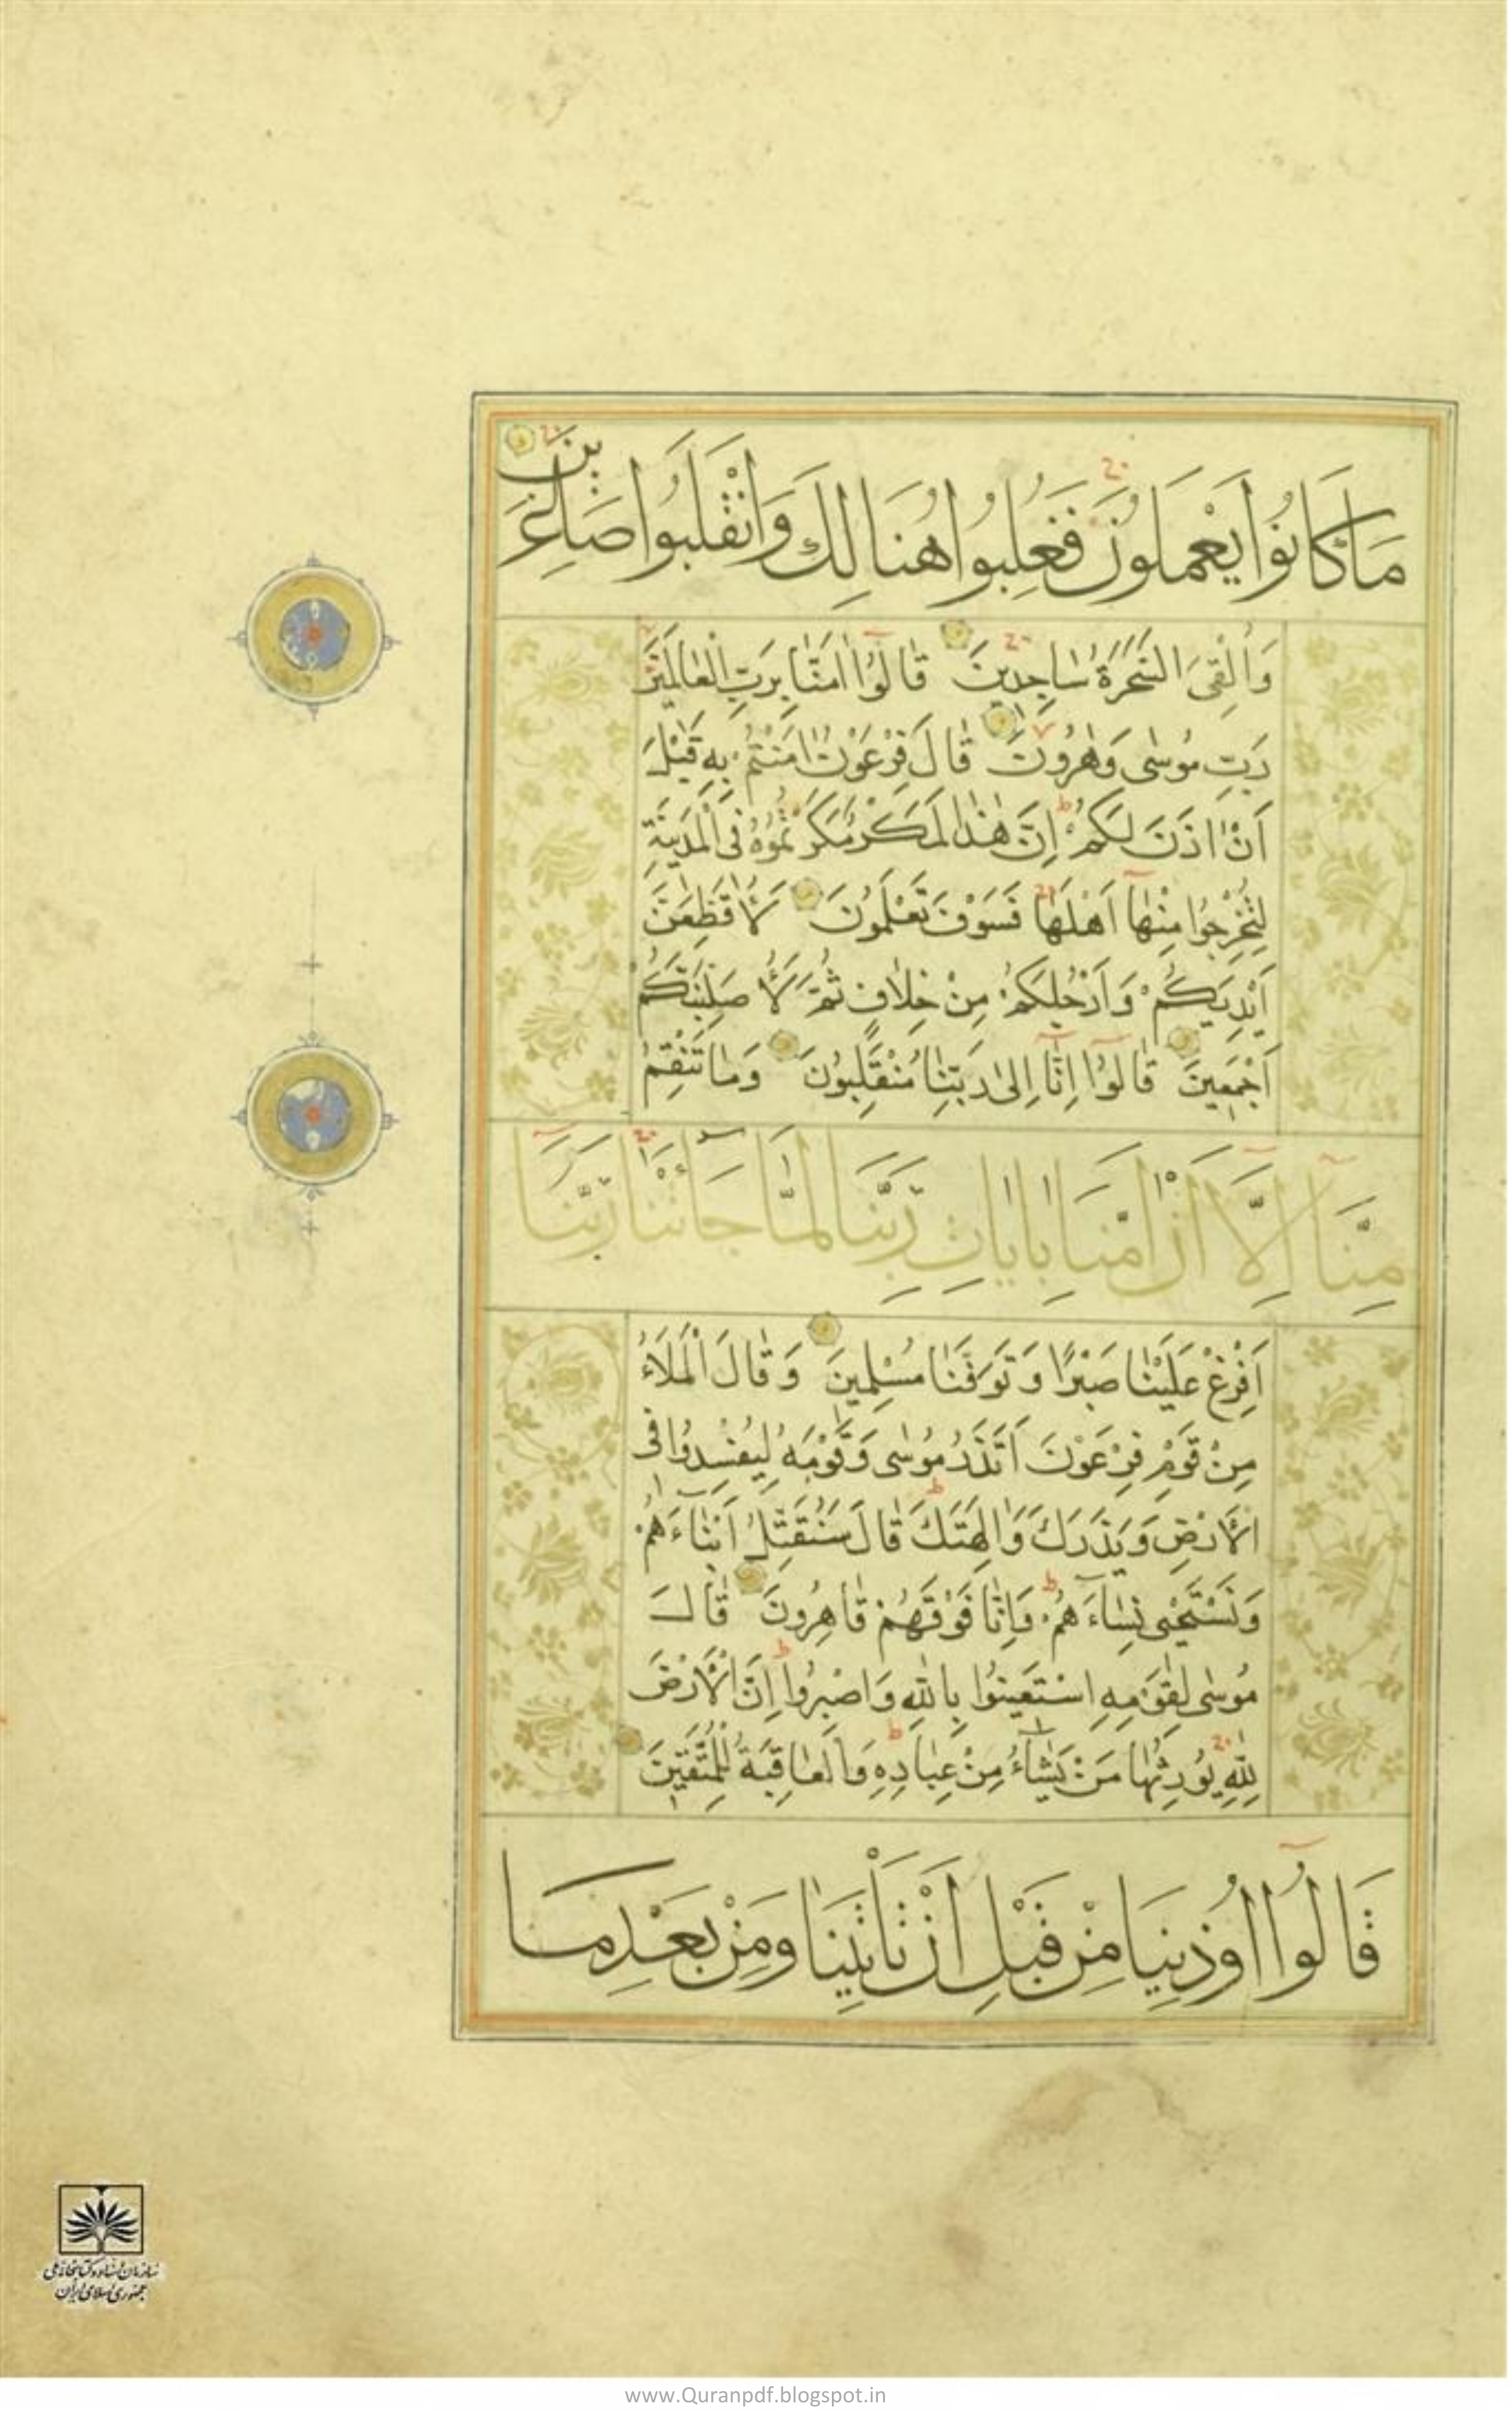 مَا كَانُوا يَعْمَلُونَ فَغُلِبُوا هُنَالِكَ وَانْقَلَبُوا صَاغِرِينَ
وَأُلْقِيَ السَّحَرَةُ سَاجِدِينَ قَالُوا اٰمَنَّا بِرَبِّ الْعَالَمِينَ
رَبِّ مُوسٰى وَهٰرُونَ قَالَ فِرْعَوْنُ اٰمَنْتُمْ بِهِ قَبْلَ
اَنْ اٰذَنَ لَكُمْ اِنَّ هٰذَا لَمَكْرٌ مَكَرْتُمُوهُ فِي الْمَدِينَةِ
لِتُخْرِجُوا مِنْهَا اَهْلَهَا فَسَوْفَ تَعْلَمُونَ لَاُقَطِّعَنَّ
اَيْدِيَكُمْ وَاَرْجُلَكُمْ مِنْ خِلَافٍ ثُمَّ لَاُصَلِّبَنَّكُمْ
اَجْمَعِينَ قَالُوا اِنَّا اِلٰى رَبِّنَا مُنْقَلِبُونَ وَمَا تَنْقِمُ
مِنَّا اِلَّا اَنْ اٰمَنَّا بِاٰيَاتِ رَبِّنَا لَمَّا جَاءَتْنَا رَبَّنَا
اَفْرِغْ عَلَيْنَا صَبْرًا وَتَوَفَّنَا مُسْلِمِينَ وَقَالَ الْمَلَاُ
مِنْ قَوْمِ فِرْعَوْنَ اَتَذَرُ مُوسٰى وَقَوْمَهُ لِيُفْسِدُوا فِي
الْاَرْضِ وَيَذَرَكَ وَاٰلِهَتَكَ قَالَ سَنُقَتِّلُ اَبْنَاءَهُمْ
وَنَسْتَحْيِي نِسَاءَهُمْ وَاِنَّا فَوْقَهُمْ قَاهِرُونَ قَالَ
مُوسٰى لِقَوْمِهِ اسْتَعِينُوا بِاللّٰهِ وَاصْبِرُوا اِنَّ الْاَرْضَ
لِلّٰهِ يُورِثُهَا مَنْ يَشَاءُ مِنْ عِبَادِهِ وَالْعَاقِبَةُ لِلْمُتَّقِينَ
قَالُوا اُوذِينَا مِنْ قَبْلِ اَنْ تَأْتِيَنَا وَمِنْ بَعْدِ مَا
سازمان اسناد و کتابخانه ملی
جمهوری اسلامی ایران
www.Quranpdf.blogspot.in